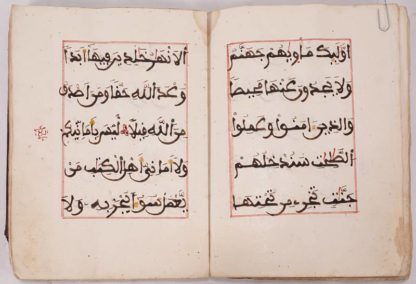 أوليك مأويهم جهنم
ولا يجدون عنها محيصا
والذين امنوا وعملوا
الصلحت سندخلهم
جنت تجرى من تحتها
الانهر خلدين فيها أبدا
وعد الله حقا ومن اصدق
من الله قيلا ليس بأمانيكم
ولا أمانى أهل الكتب من
يعمل سوءا يجز به ولا